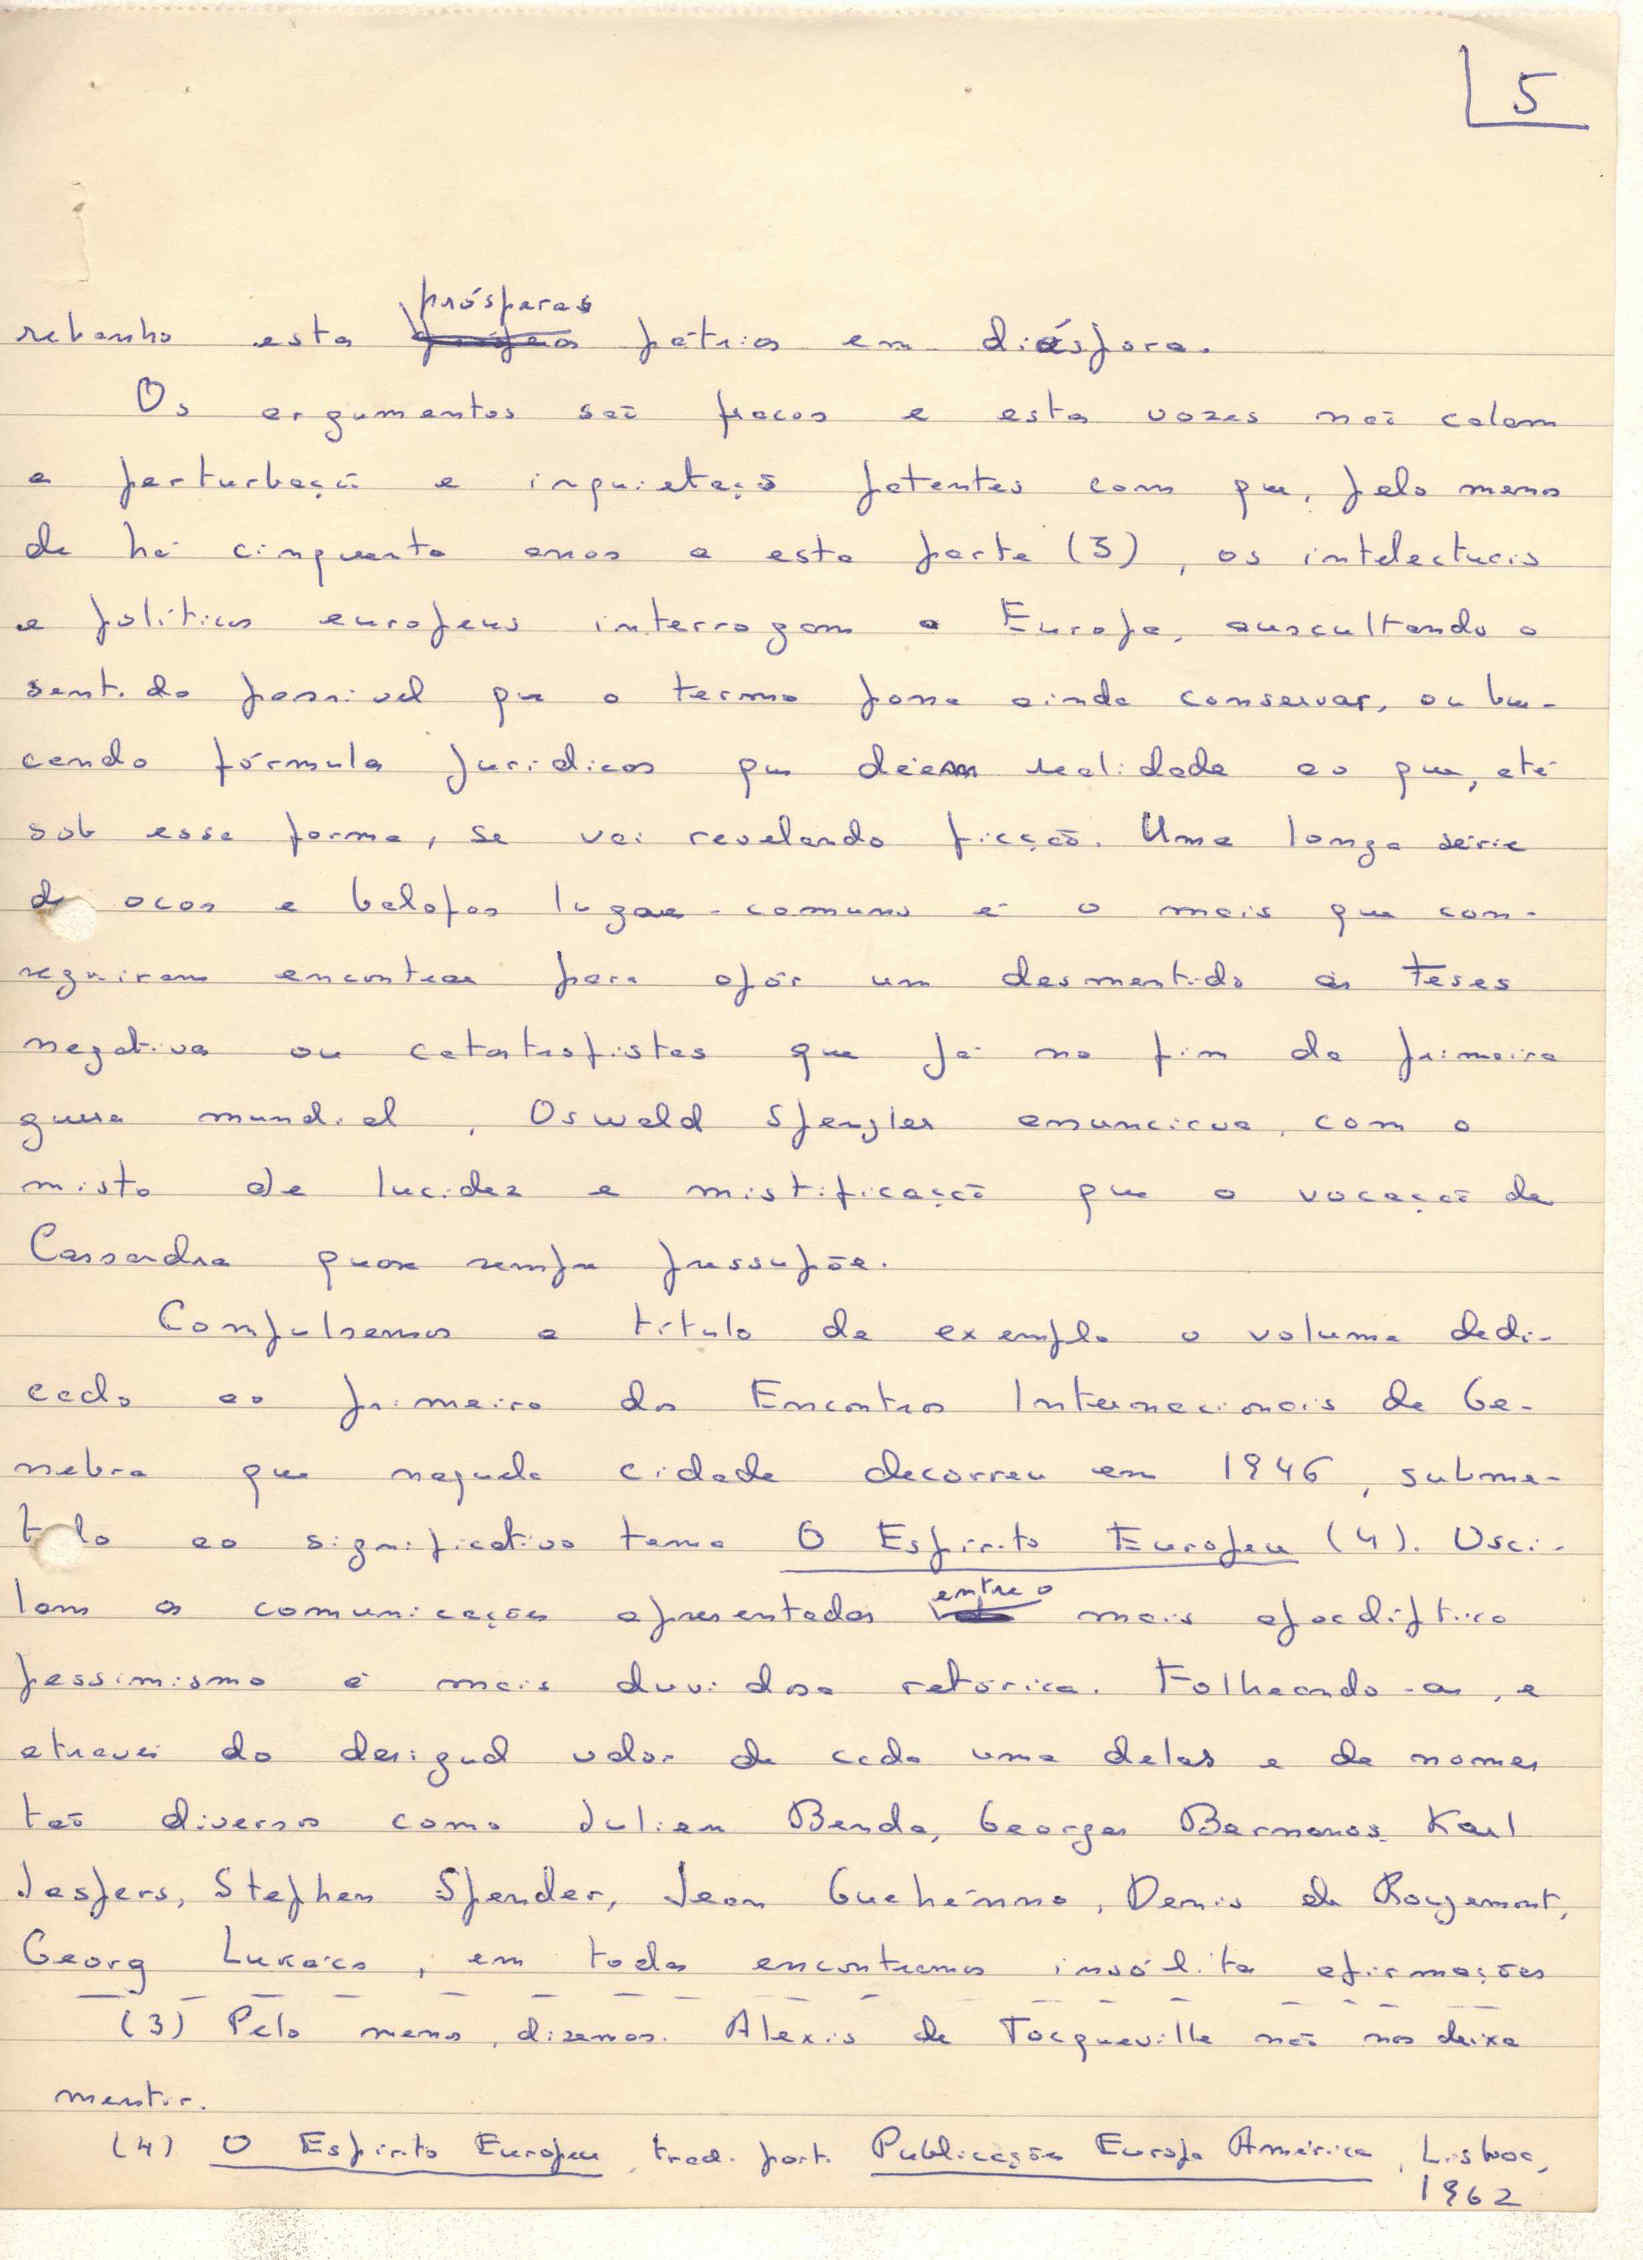 5
prósperas
rebanho esta pátria em diáspora.
Os argumentos são fracos e estas vozes não calam
a perturbação e inquietação patentes com que, pelo menos
de há cinquenta anos a esta parte (3), os intelectuais
e políticos europeus interrogam a Europa, auscultando o
sentido possível que o termo possa ainda conservar, ou bus-
cando fórmulas jurídicas que dêem realidade ao que, até
sob essa forma, se vai revelando ficção. Uma longa série
de ocos e balofos lugares-comuns é o mais que con-
seguiram encontrar para opôr um desmentido às teses
negativas ou catastrofistas que já no fim da primeira
guerra mundial, Oswald Spengler enunciava, com o
misto de lucidez e mistificação que a vocação de
Cassandra quase sempre pressupõe.
Compulsemos a título de exemplo o volume dedi-
cado ao primeiro dos Encontros Internacionais de Ge-
nebra que naquela cidade decorreu em 1946, subme-
tido ao significativo tema O Espírito Europeu (4). Osci-
entre o
lam as comunicações apresentadas mais apocalíptico
pessimismo e mais duvidosa retórica. Folheando-as, e
através do desigual valor de cada uma delas e de nomes
tão diversos como Julien Benda, Georges Bernanos, Karl
Jaspers, Stephen Spender, Jean Guehénno, Denis de Rougemont,
Georg Lukács, em todas encontramos insólitas afirmações
(3) Pelo menos, dizemos. Alexis de Tocqueville não nos deixa
mentir.
(4) O Espírito Europeu, trad. port. Publicações Europa América, Lisboa,
1962